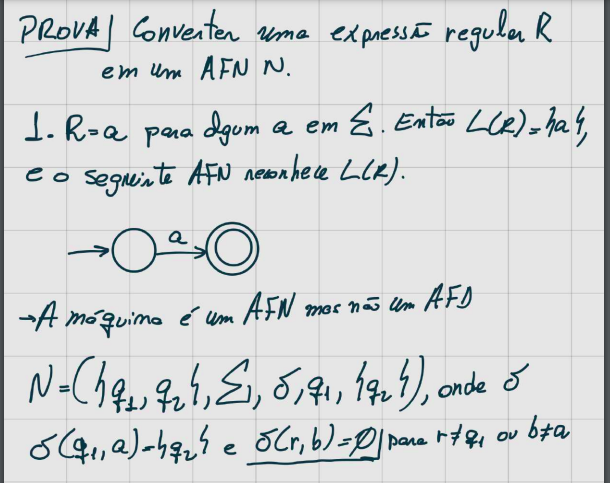 PROVA| Converter uma expressão regular R
em um AFN N.
1. R=a para algum a em Σ. Então L(R)={a},
e o seguinte AFN reconhece L(R).
a
→A máquina é um AFN mas não um AFD
N=({q₁, q₂}, Σ, δ, q₁, {q₂}), onde δ
δ(q₁, a)={q₂} e δ(r, b)=∅| para r≠q₁ ou b≠a